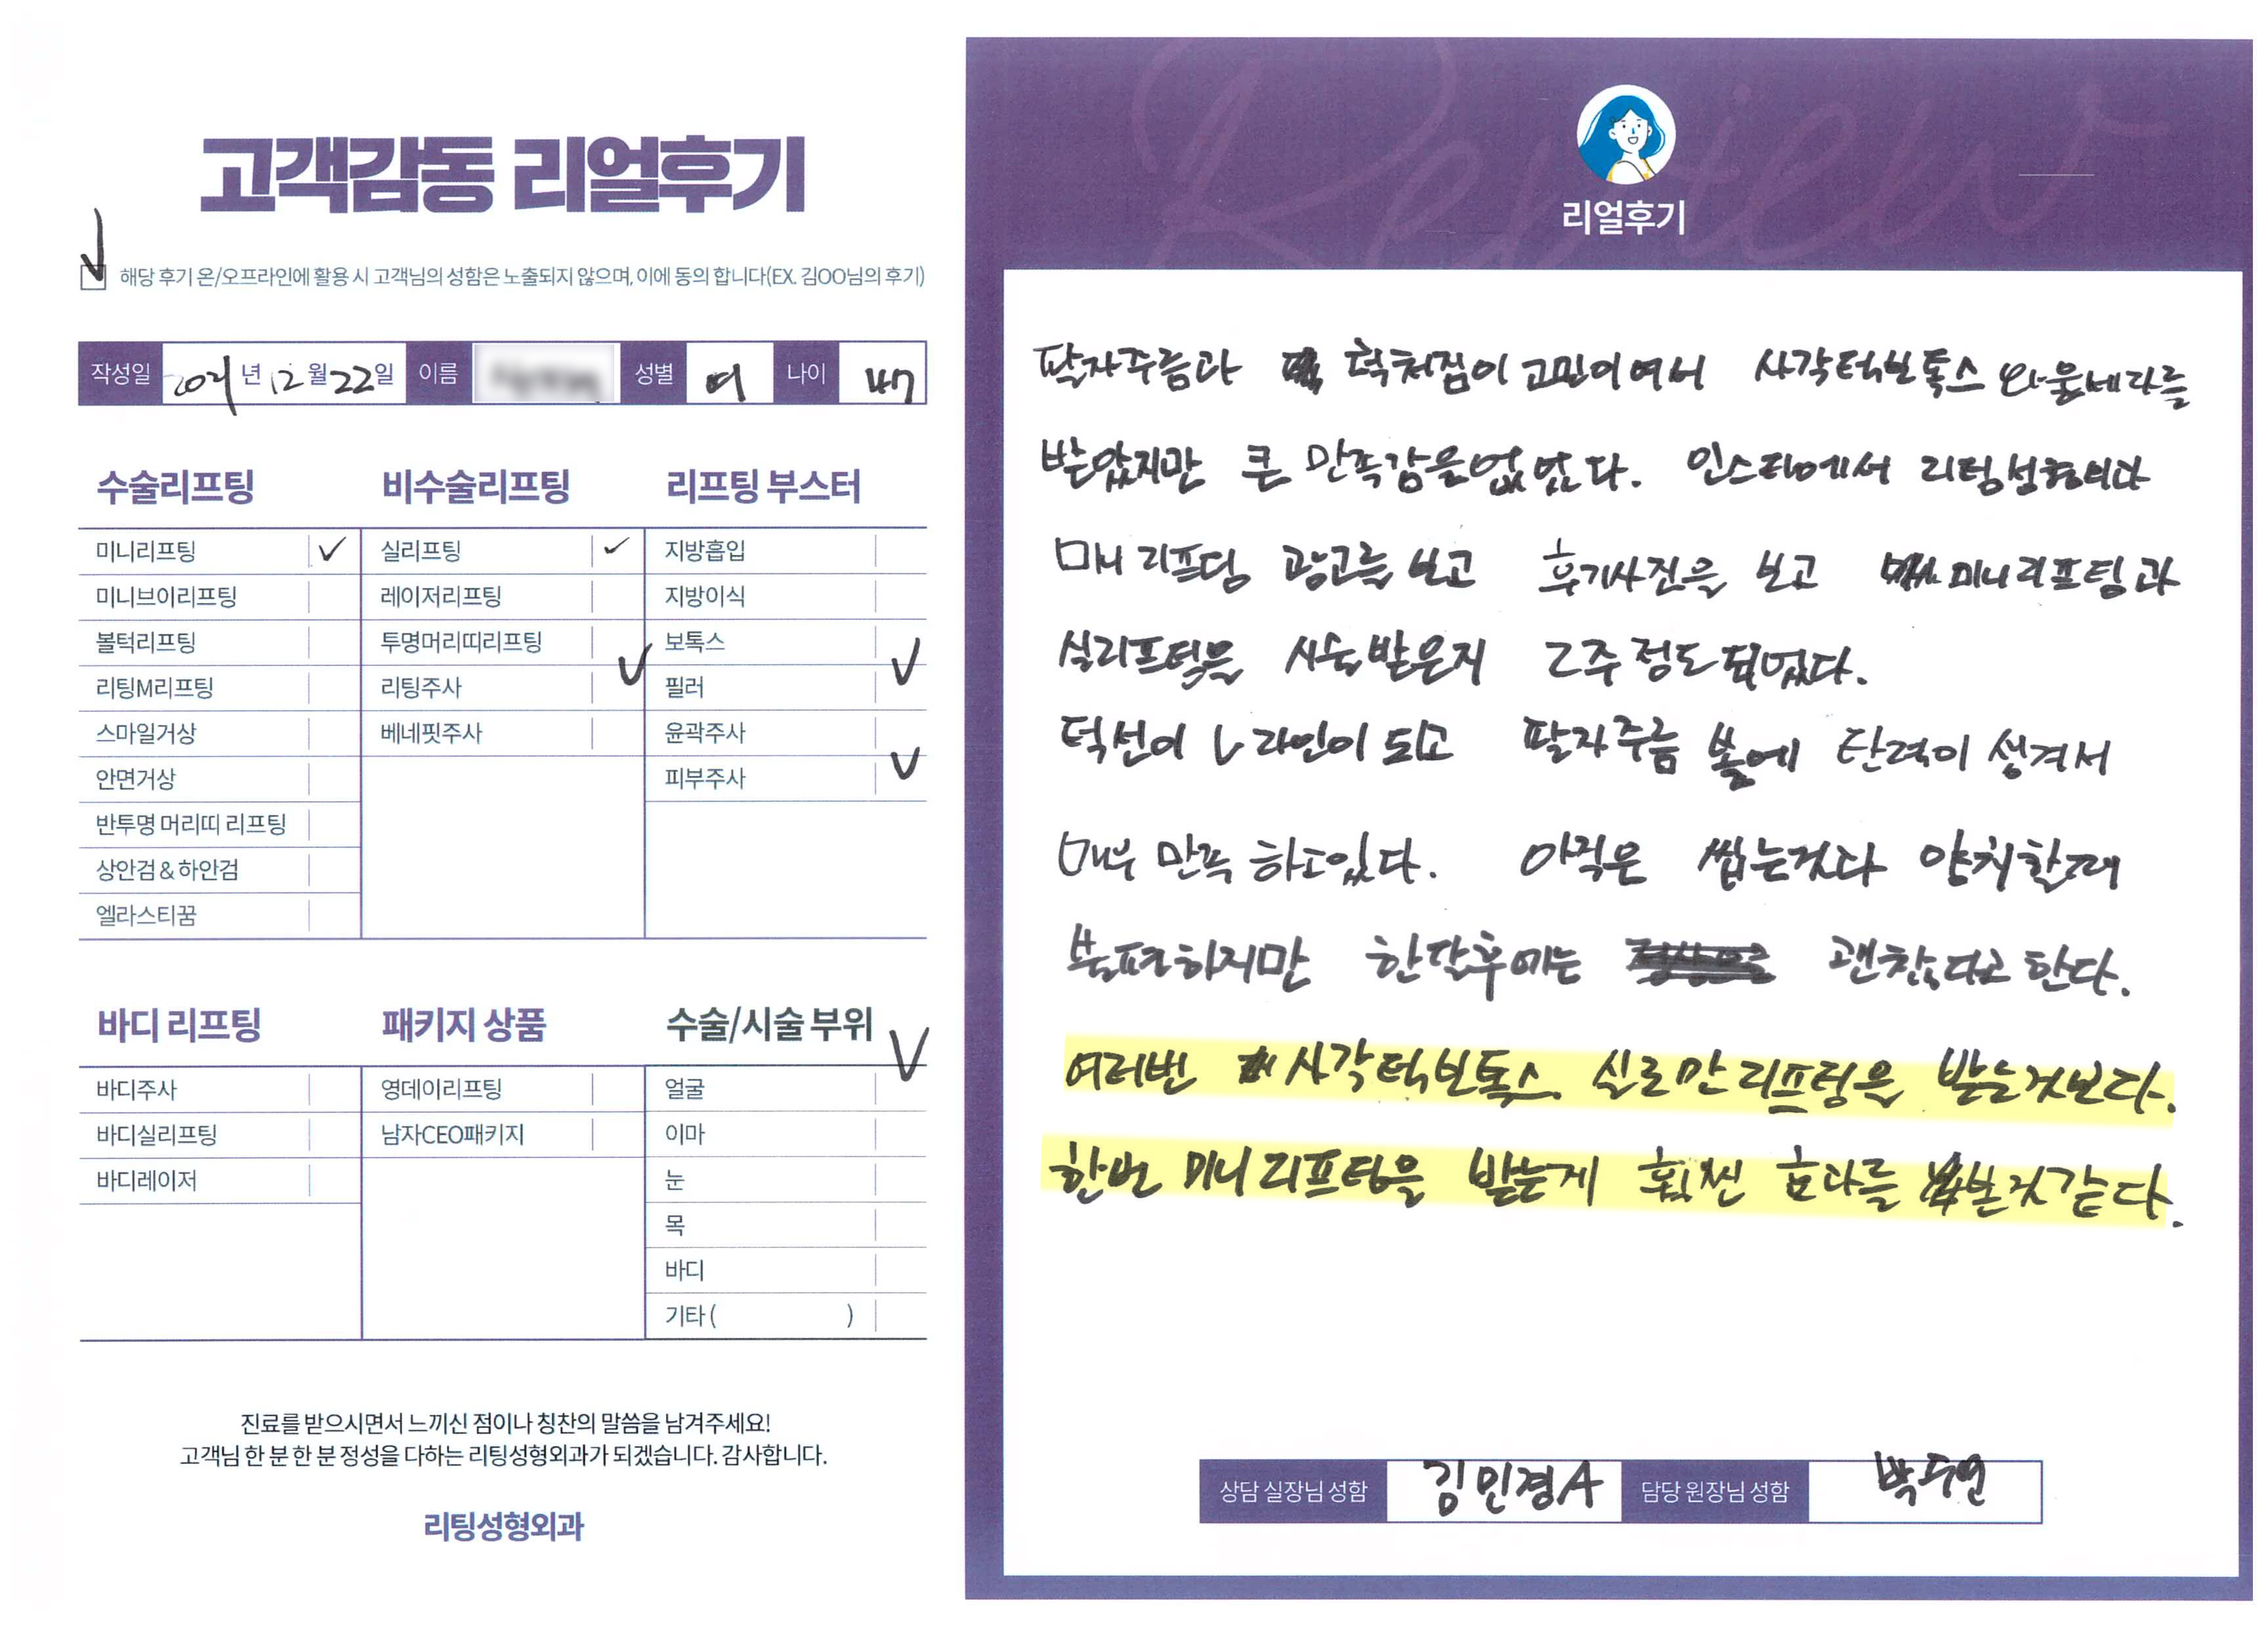 고객감동 리얼후기
해당 후기 온/오프라인에 활용 시 고객님의 성함은 노출되지 않으며, 이에 동의 합니다(EX. 김OO님의 후기)
작성일 2021년 12월 22일 이름 성별 여 나이 47
수술리프팅
미니리프팅 ✓
미니브이리프팅
볼턱리프팅
리팅M리프팅
스마일거상
안면거상
반투명 머리띠 리프팅
상안검 & 하안검
엘라스티꿈
비수술리프팅
실리프팅 ✓
레이저리프팅
투명머리띠리프팅
리팅주사 ✓
베네핏주사
리프팅 부스터
지방흡입
지방이식
보톡스 ✓
필러
윤곽주사
피부주사 ✓
바디 리프팅
바디주사
바디실리프팅
바디레이저
패키지 상품
영데이리프팅
남자CEO패키지
수술/시술 부위
얼굴 ✓
이마
눈
목
바디
기타 ( )
진료를 받으시면서 느끼신 점이나 칭찬의 말씀을 남겨주세요!
고객님 한 분 한 분 정성을 다하는 리팅성형외과가 되겠습니다. 감사합니다.
리팅성형외과
Review
리얼후기
팔자주름과 턱쳐짐이 고민이여서 사각턱보톡스 와 울쎄라를
받았지만 큰 만족감은 없었다. 인스타에서 리팅성형외과
미니 리프팅 광고를 보고 후기사진을 보고 미니리프팅과
실리프팅을 시술받은지 2주 정도 되었다.
턱선이 V라인이 되고 팔자주름 볼에 탄력이 생겨서
매우 만족 하고있다. 아직은 씹는것과 양치할때
불편하지만 한달후에는 괜찮다고 한다.
여러번 사각턱보톡스 실로만 리프팅을 받는것보다.
한번 미니 리프팅을 받는게 훨씬 효과를 본것같다.
상담 실장님 성함 김민경A 담당 원장님 성함